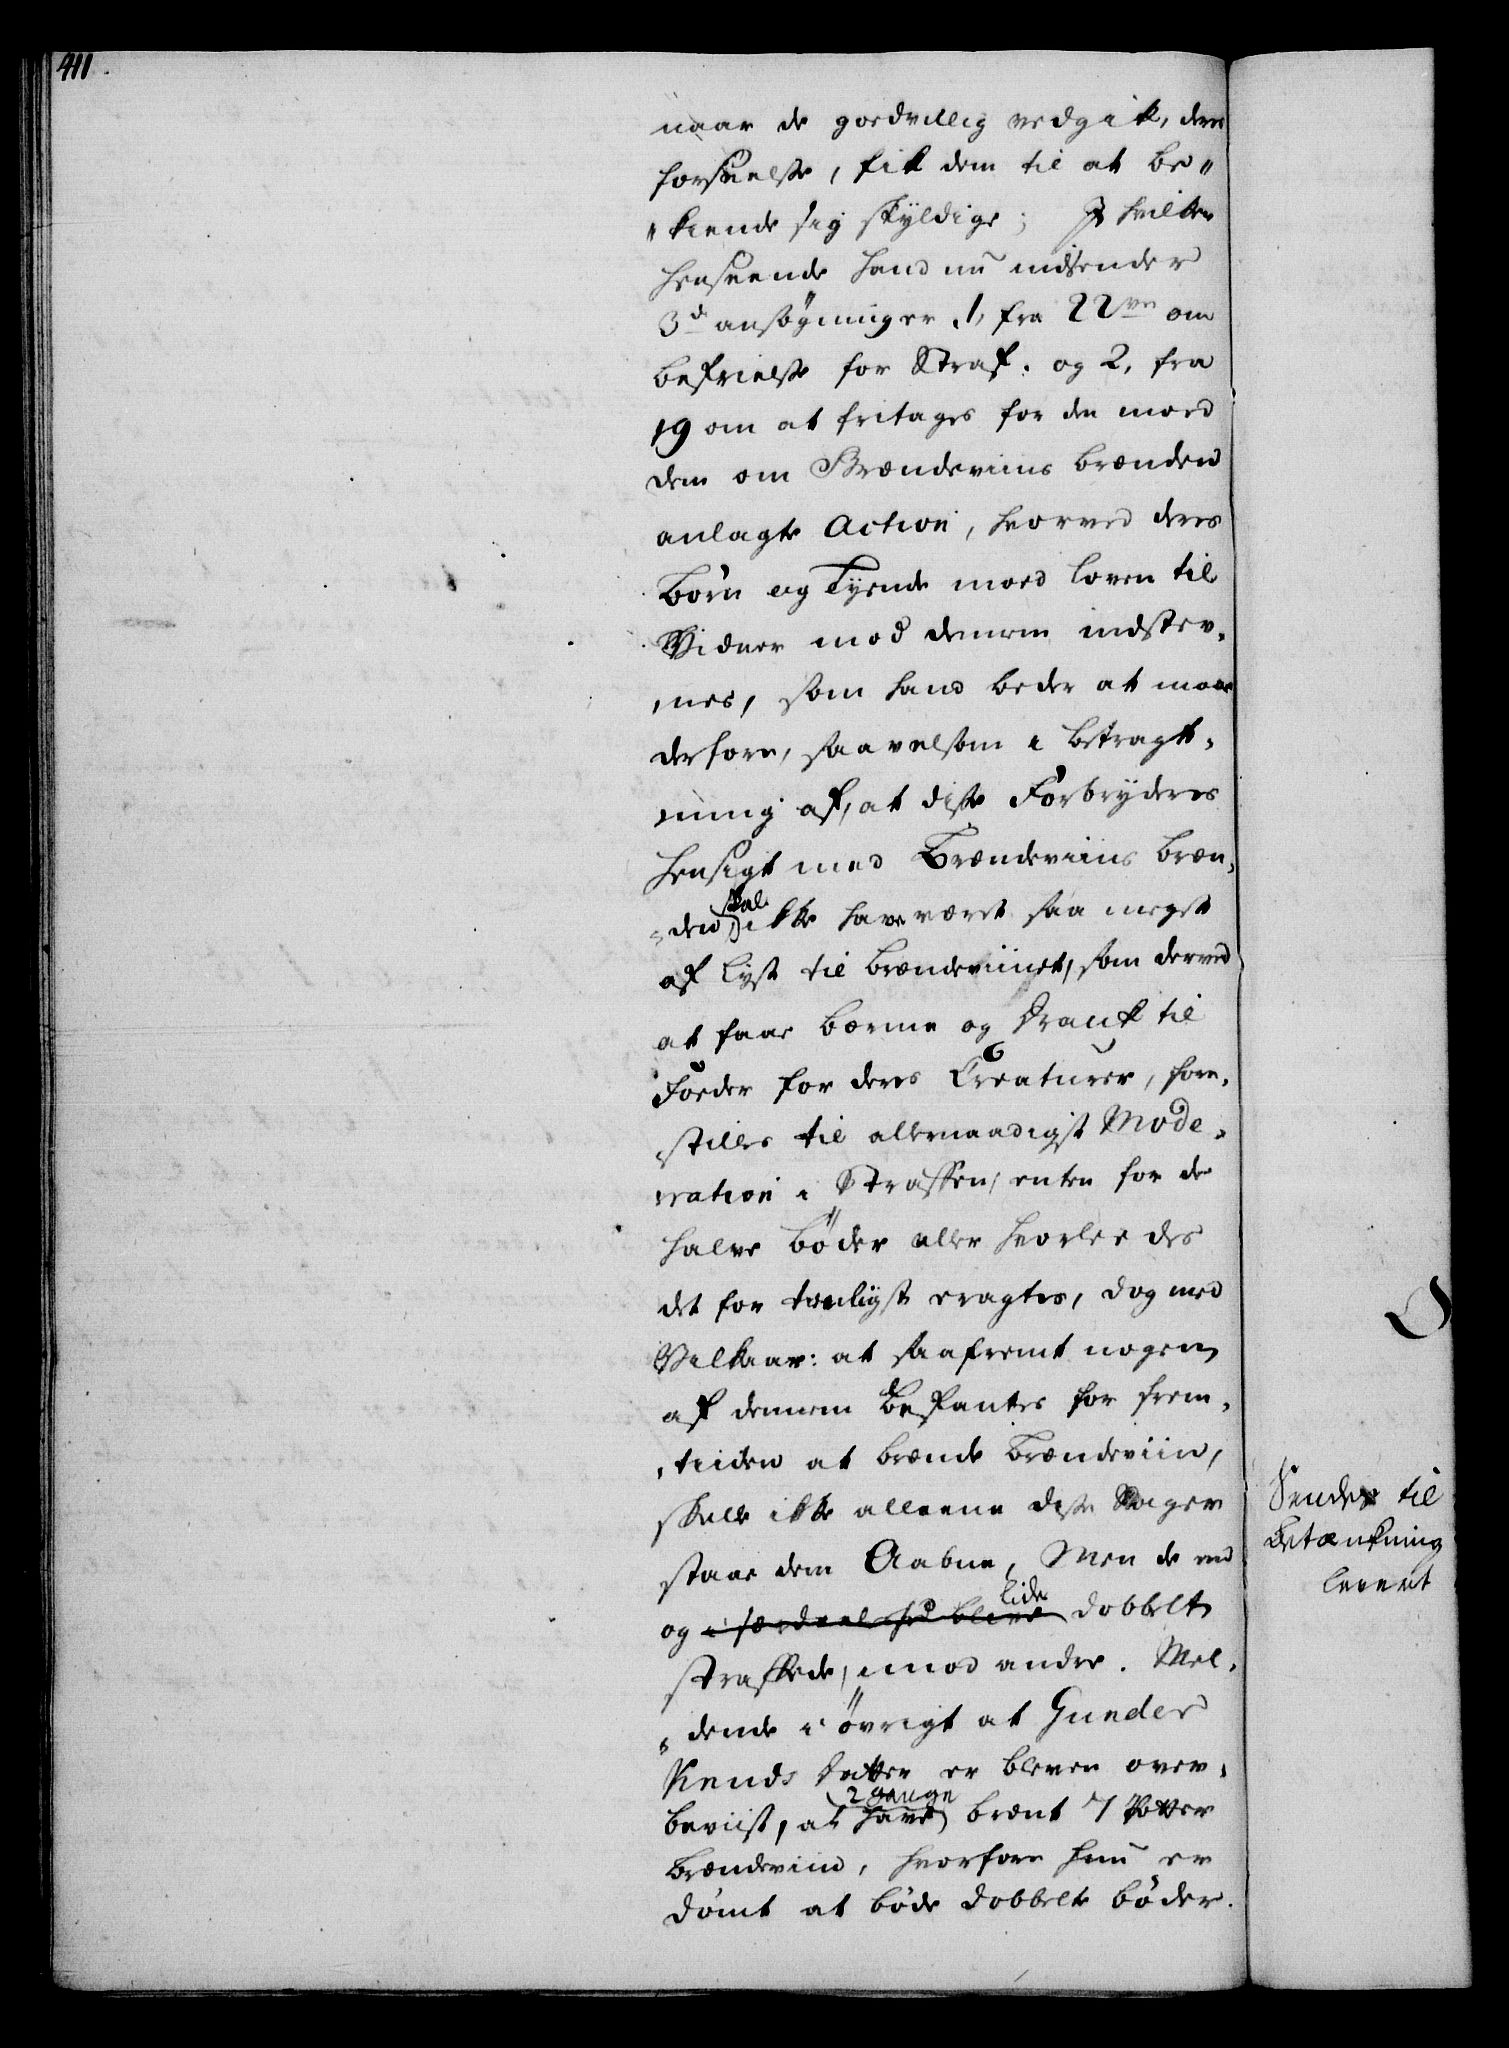 411.
naar de goedvillig vedgik, deres
forseelse, fik dem til at be„
„kiende sig skyldige; I hvilken
henseende hand nu indsender
3de ansøgninger 1, fra 22ve om
befrielse for Straf. og 2, fra
19 om at fritages for den moed
dem om Brændeviins brænden
anlagte Action, hvorved deres
børn og Tyende moed loven til
Vidner mod dennem indstev„
„nes, som hand beder at maae
derfore, saavelsom i betragt„
„ning af, at disse Forbryderes
hensigt med Brændeviins bræn„
„den skal ikke have været saa meget
af lyst til brændeviinet, som derved
at faae bærme og Drank til
Foeder for deres Creaturer, fore„
stilles til allernaadigst Mode„
„ration i Straffen, enten for de
halve bøder eller hvorleedes
det for tienligst eragtes, dog med
Vilkaar: at saafremt nogen
af dennem befantes for frem„
„tiiden at brænde brændeviin,
skulle ikke alleene disse Sager
staae dem Aabne, Men de end
og i særdeeleshed blive lide dobbelt
straffede, imod andre. Mel„
„dende i øvrigt at Gunder
Knuds Datter er bleven over„
beviist, at have 2 gange brænt 7 Potter
brændeviin, hvorfore hun er
dømt at bøde dobbelte bøder.
Sendes til
Betænkning
leveret